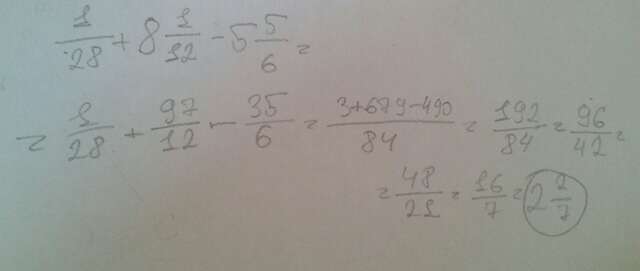 1/28 + 8 1/12 - 5 5/6 =
= 1/28 + 97/12 - 35/6 = 3+679-490/84 = 192/84 = 96/42 =
= 48/21 = 16/7 = 2 2/7